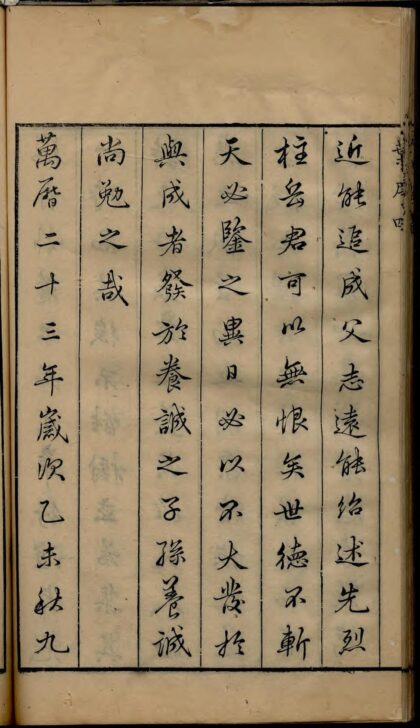 近能追成父志遠能紹述先烈
柱岳君可以無恨矣世德不斬
天必鑒之異日必以不大發於
與成者發於養誠之子孫養誠
尚勉之哉
萬曆二十三年歲次乙未秋九